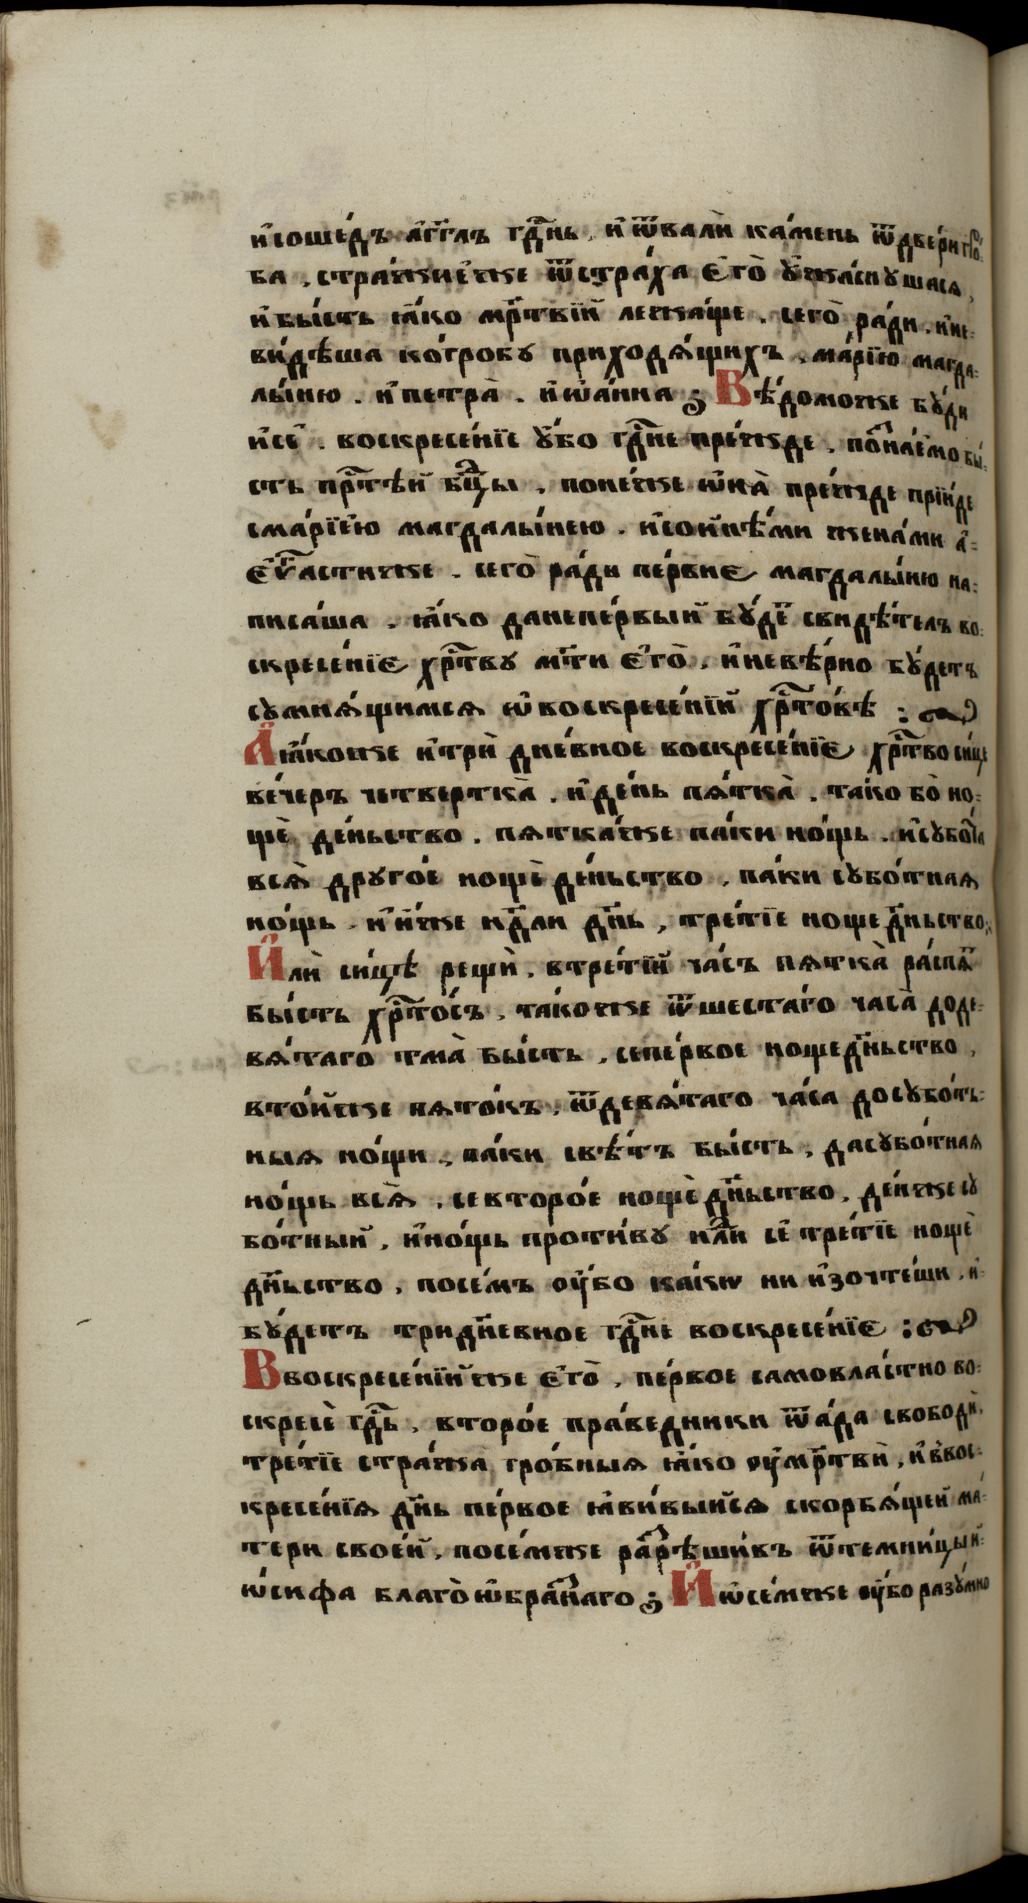 и҆сошє́дъ а҆́гг҃лъ гдⷭ҇нь, и҆ ѿвалѝ ка́мень ѿдве́ри гро́
ба, стра́жиі҆́же ѿстра́ха є҆го̀ ᲂу҆жасну́шася,
и҆ бы́сть ꙗ҆́ко мр҃твїи лежа́ще. сего̀ ра́ди, и҆не
ви́дѣша ко́гробу приходѧ́щихъ, ма́рїю магда
лы́ню. и҆ петра̀. и҆ і҆ѡа́нна ; Вѣ́доможе бу́ди
и҆ сѐ. воскресе́нїе ᲂу҆́бо гдⷭ҇не пре́жде, позна́емо бы́
сть прⷭ҇тѣй бцⷣы, поне́же ѡ҆на̀ пре́жде прїи́де
сма́рїею магдалы́нею. и҆соине́ми жена́ми а҆
є҆ѵⷢ҇листиже. сего̀ ра́ди пе́рвие магдалы́ню на
писа́ша, ꙗ҆́ко данепе́рвый бу́дет свидѣ́телъ во
скресе́нїе хрⷭ҇тву мт҃и є҆го̀, и҆невѣ́рно бу́детъ
сумнѧ́щимся ѡ҆ воскресе́нїй хрⷭ҇то́вѣ :
А҆ ꙗ҆́коже и҆ трѝ дне́вное воскресе́нїе хрⷭ҇тво си́це
ве́черъ четвертка̀, и҆ де́нь пѧ́тка̀, та́ко бо̀ но
щѐ де́ньство. пѧтка́же па́ки но́щь. и҆субо́та
всѧ̀ друго́е нощѐ де́ньство, па́ки субо́тная
но́щь и҆ и҆́же нⷣли дн҃ь, тре́тїе ноще дн҃ьство:
И҆лѝ си́цѣ рещѝ, втре́тїй ча́съ пѧтка̀ ра́спят
бы́сть хрⷭ҇то́съ, та́коже ѿшеста́го часа̀ доде
вѧ́таго тма̀ бы́сть, сепе́рвое нощедн҃ьство,
вто́йже пѧто́къ, ѿдевѧ́таго ча́са досубо́ть
ныя но́щи, па́ки свѣ́тъ бы́сть, дасубо́тная
но́щь всѧ̀, севторо́е нощѐ дн҃ьство, де́нже су
бо́тный, и҆но́щь проти́ву нⷣли сѐ тре́тїе нощѐ
дн҃ьство, посе́мъ ᲂу҆́бо ка́кѡ ни и҆зочте́ши, и҆
бу́детъ тридн҃евное гдⷭ҇не воскресе́нїе :
Ввоскресе́нїйже є҆го̀, пе́рвое самовла́стно во
скресѐ гдⷭ҇ь, второ́е пра́ведники ѿа́да свободѝ,
тре́тїе стра́жа̀ гро́бныя ꙗ҆́ко ᲂу҆мр҃твѝ, и҆ ввос
кресе́нїя дн҃ь пе́рвое ꙗ҆ви́выйся скорбѧ́щей ма́
тери свое́й, посе́мже разрѣши́въ ѿтемни́цы и҆
ѡ҆сифа благо̀ѡбра́знаго ; И҆ ѡ҆се́мже ᲂу҆́бо разу́мно